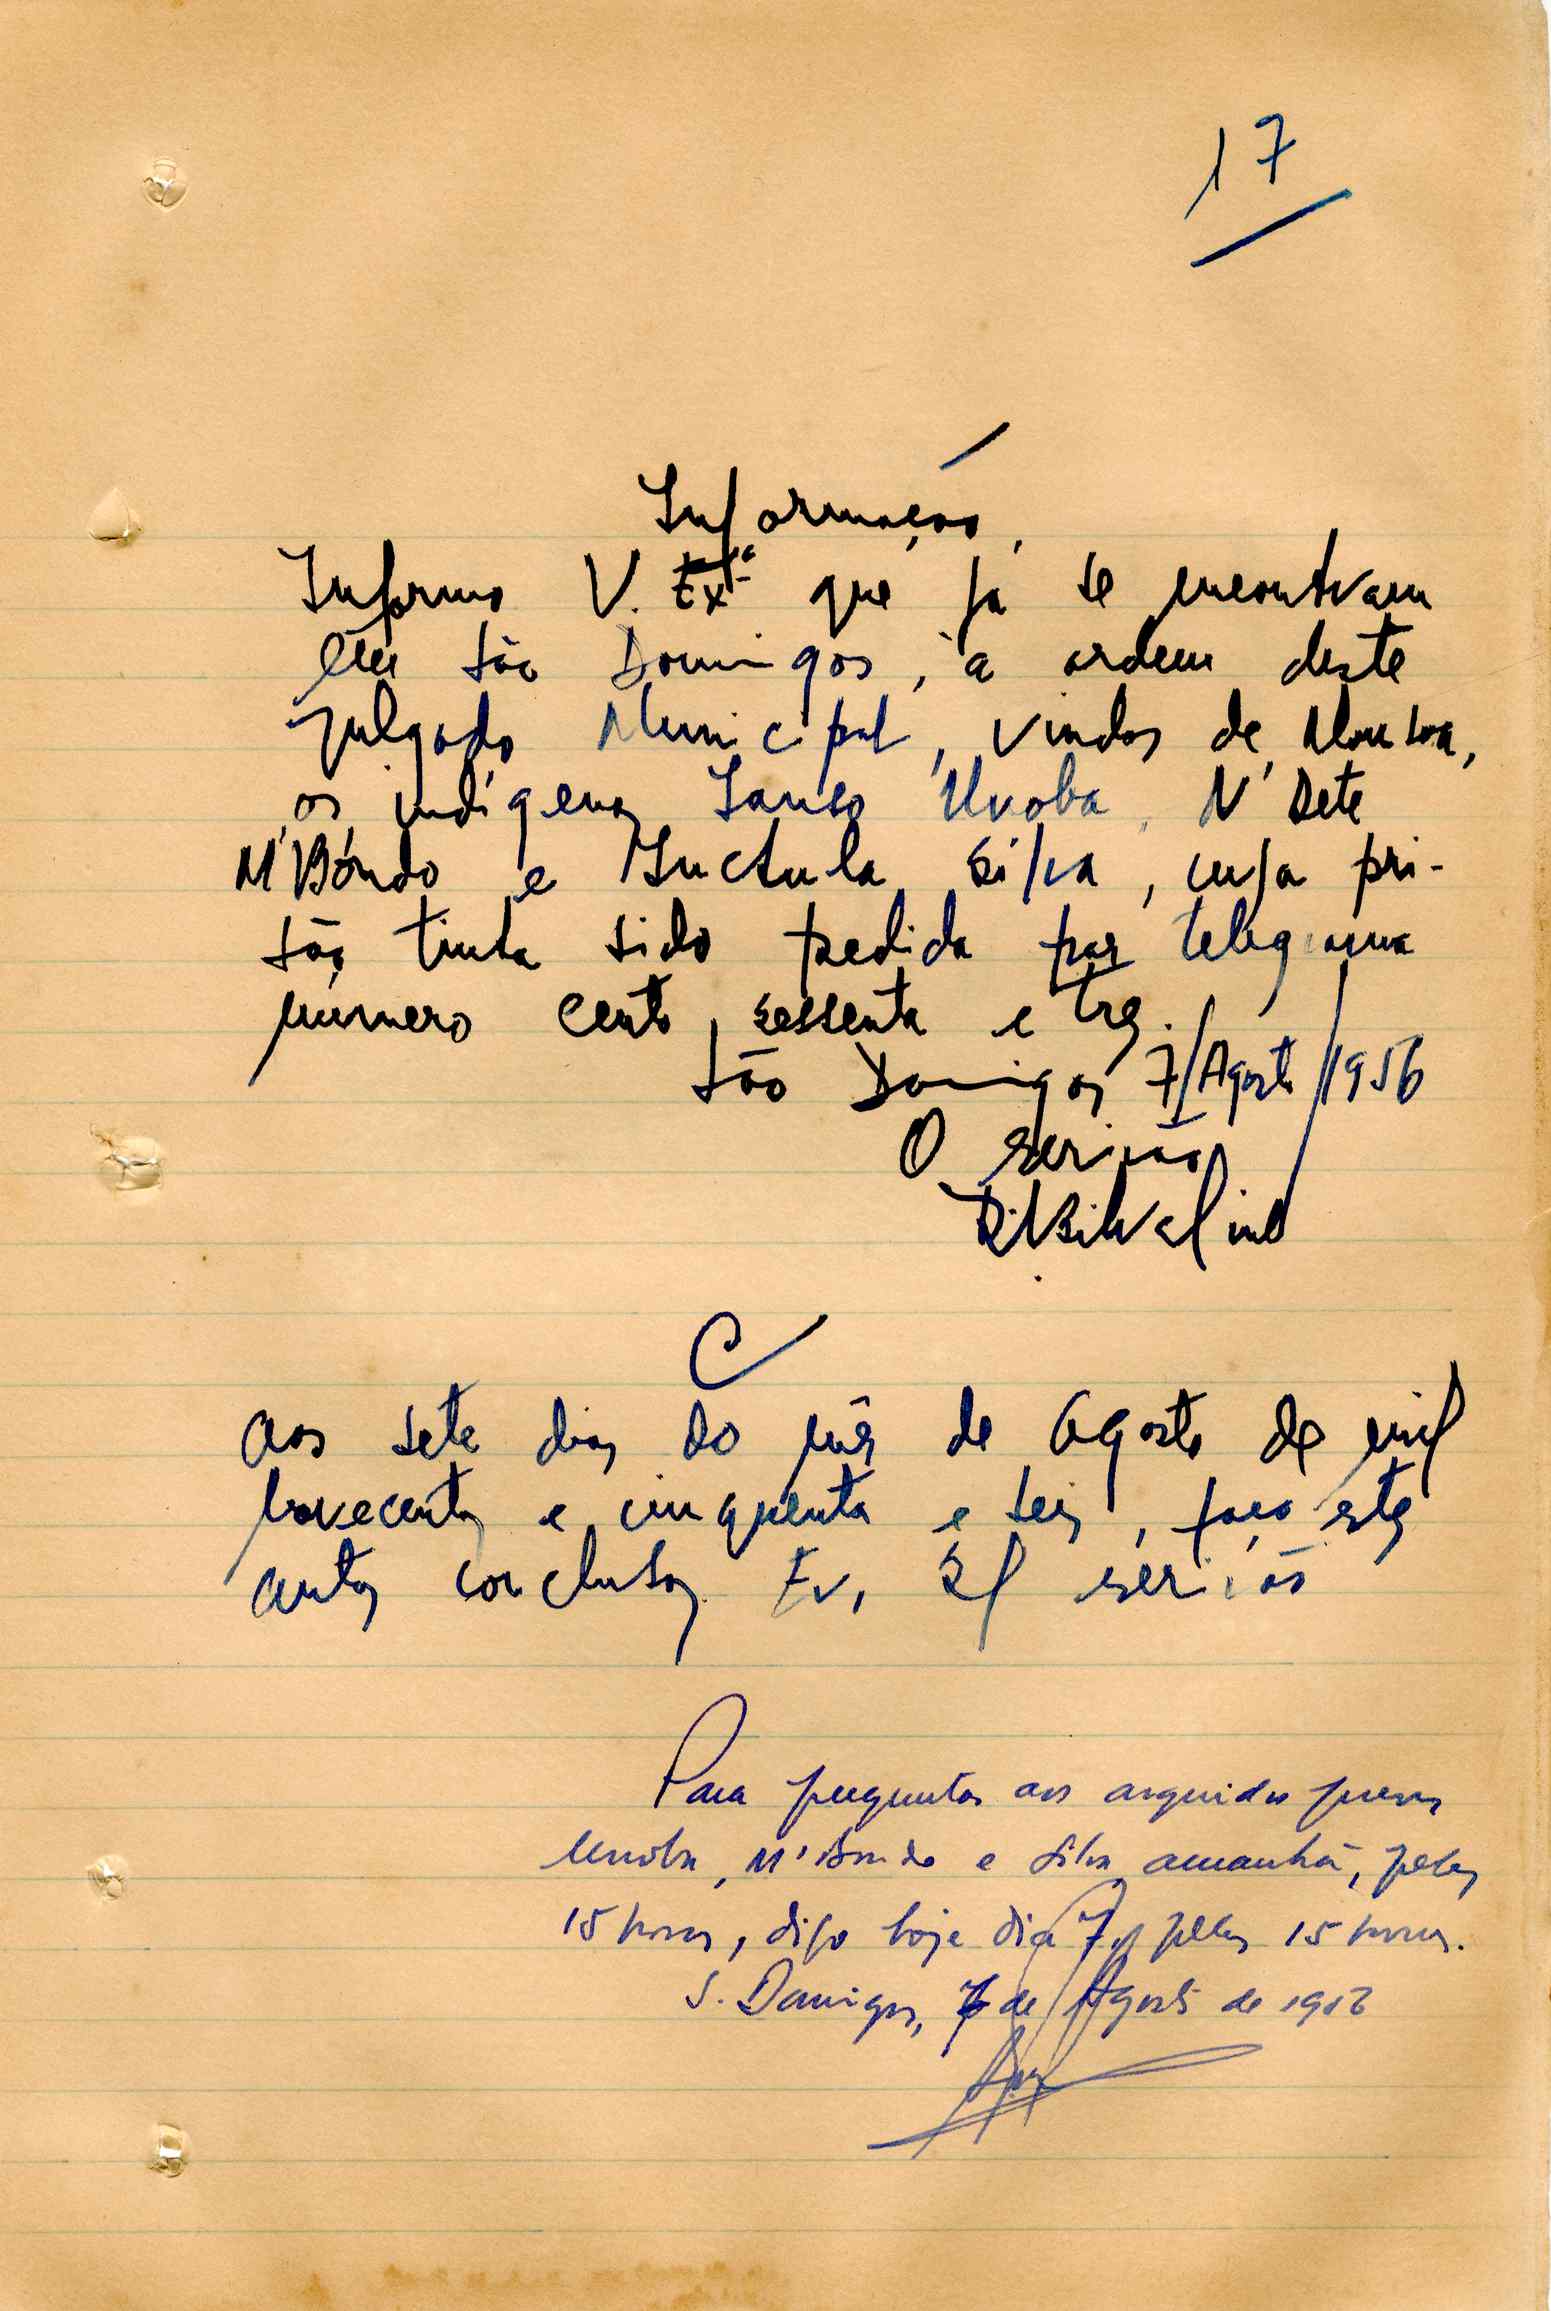 17
Informação
Informo V. Exª que já se encontram
em São Domingos, à ordem deste
Julgado Municipal, vindos de Mansoa,
os indígenas Sanco Unoba, N'Dete
M'Bóndo e Inctula Silva, cuja pri-
são tinha sido pedida por telegrama
número cento sessenta e tres.
São Domingos 7/Agosto/1956
O escrivão
C
Aos sete dias do mês de Agosto de mil
novecentos e cinquenta e seis, faço estes
autos conclusos. Eu, escrivão
Para perguntas aos arguidos presos
Unoba, M'Bondo e Silva amanhã, pelas
15 horas, digo hoje dia 7, pelas 15 horas.
S. Domingos, 7 de Agosto de 1956